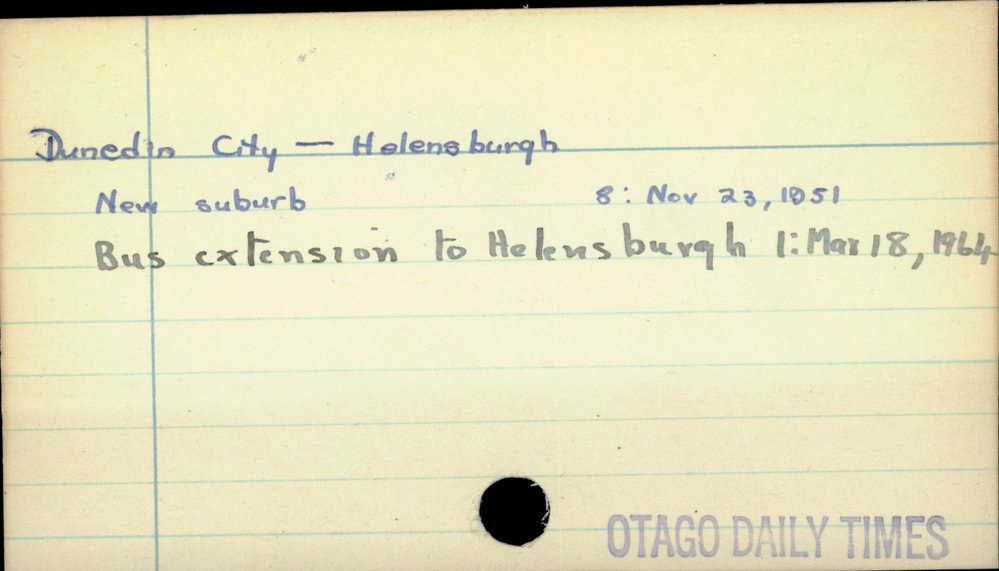 Dunedin City — Helensburgh
New suburb 8: Nov 23, 1951
Bus extension to Helensburgh 1: Mar 18, 1964
OTAGO DAILY TIMES